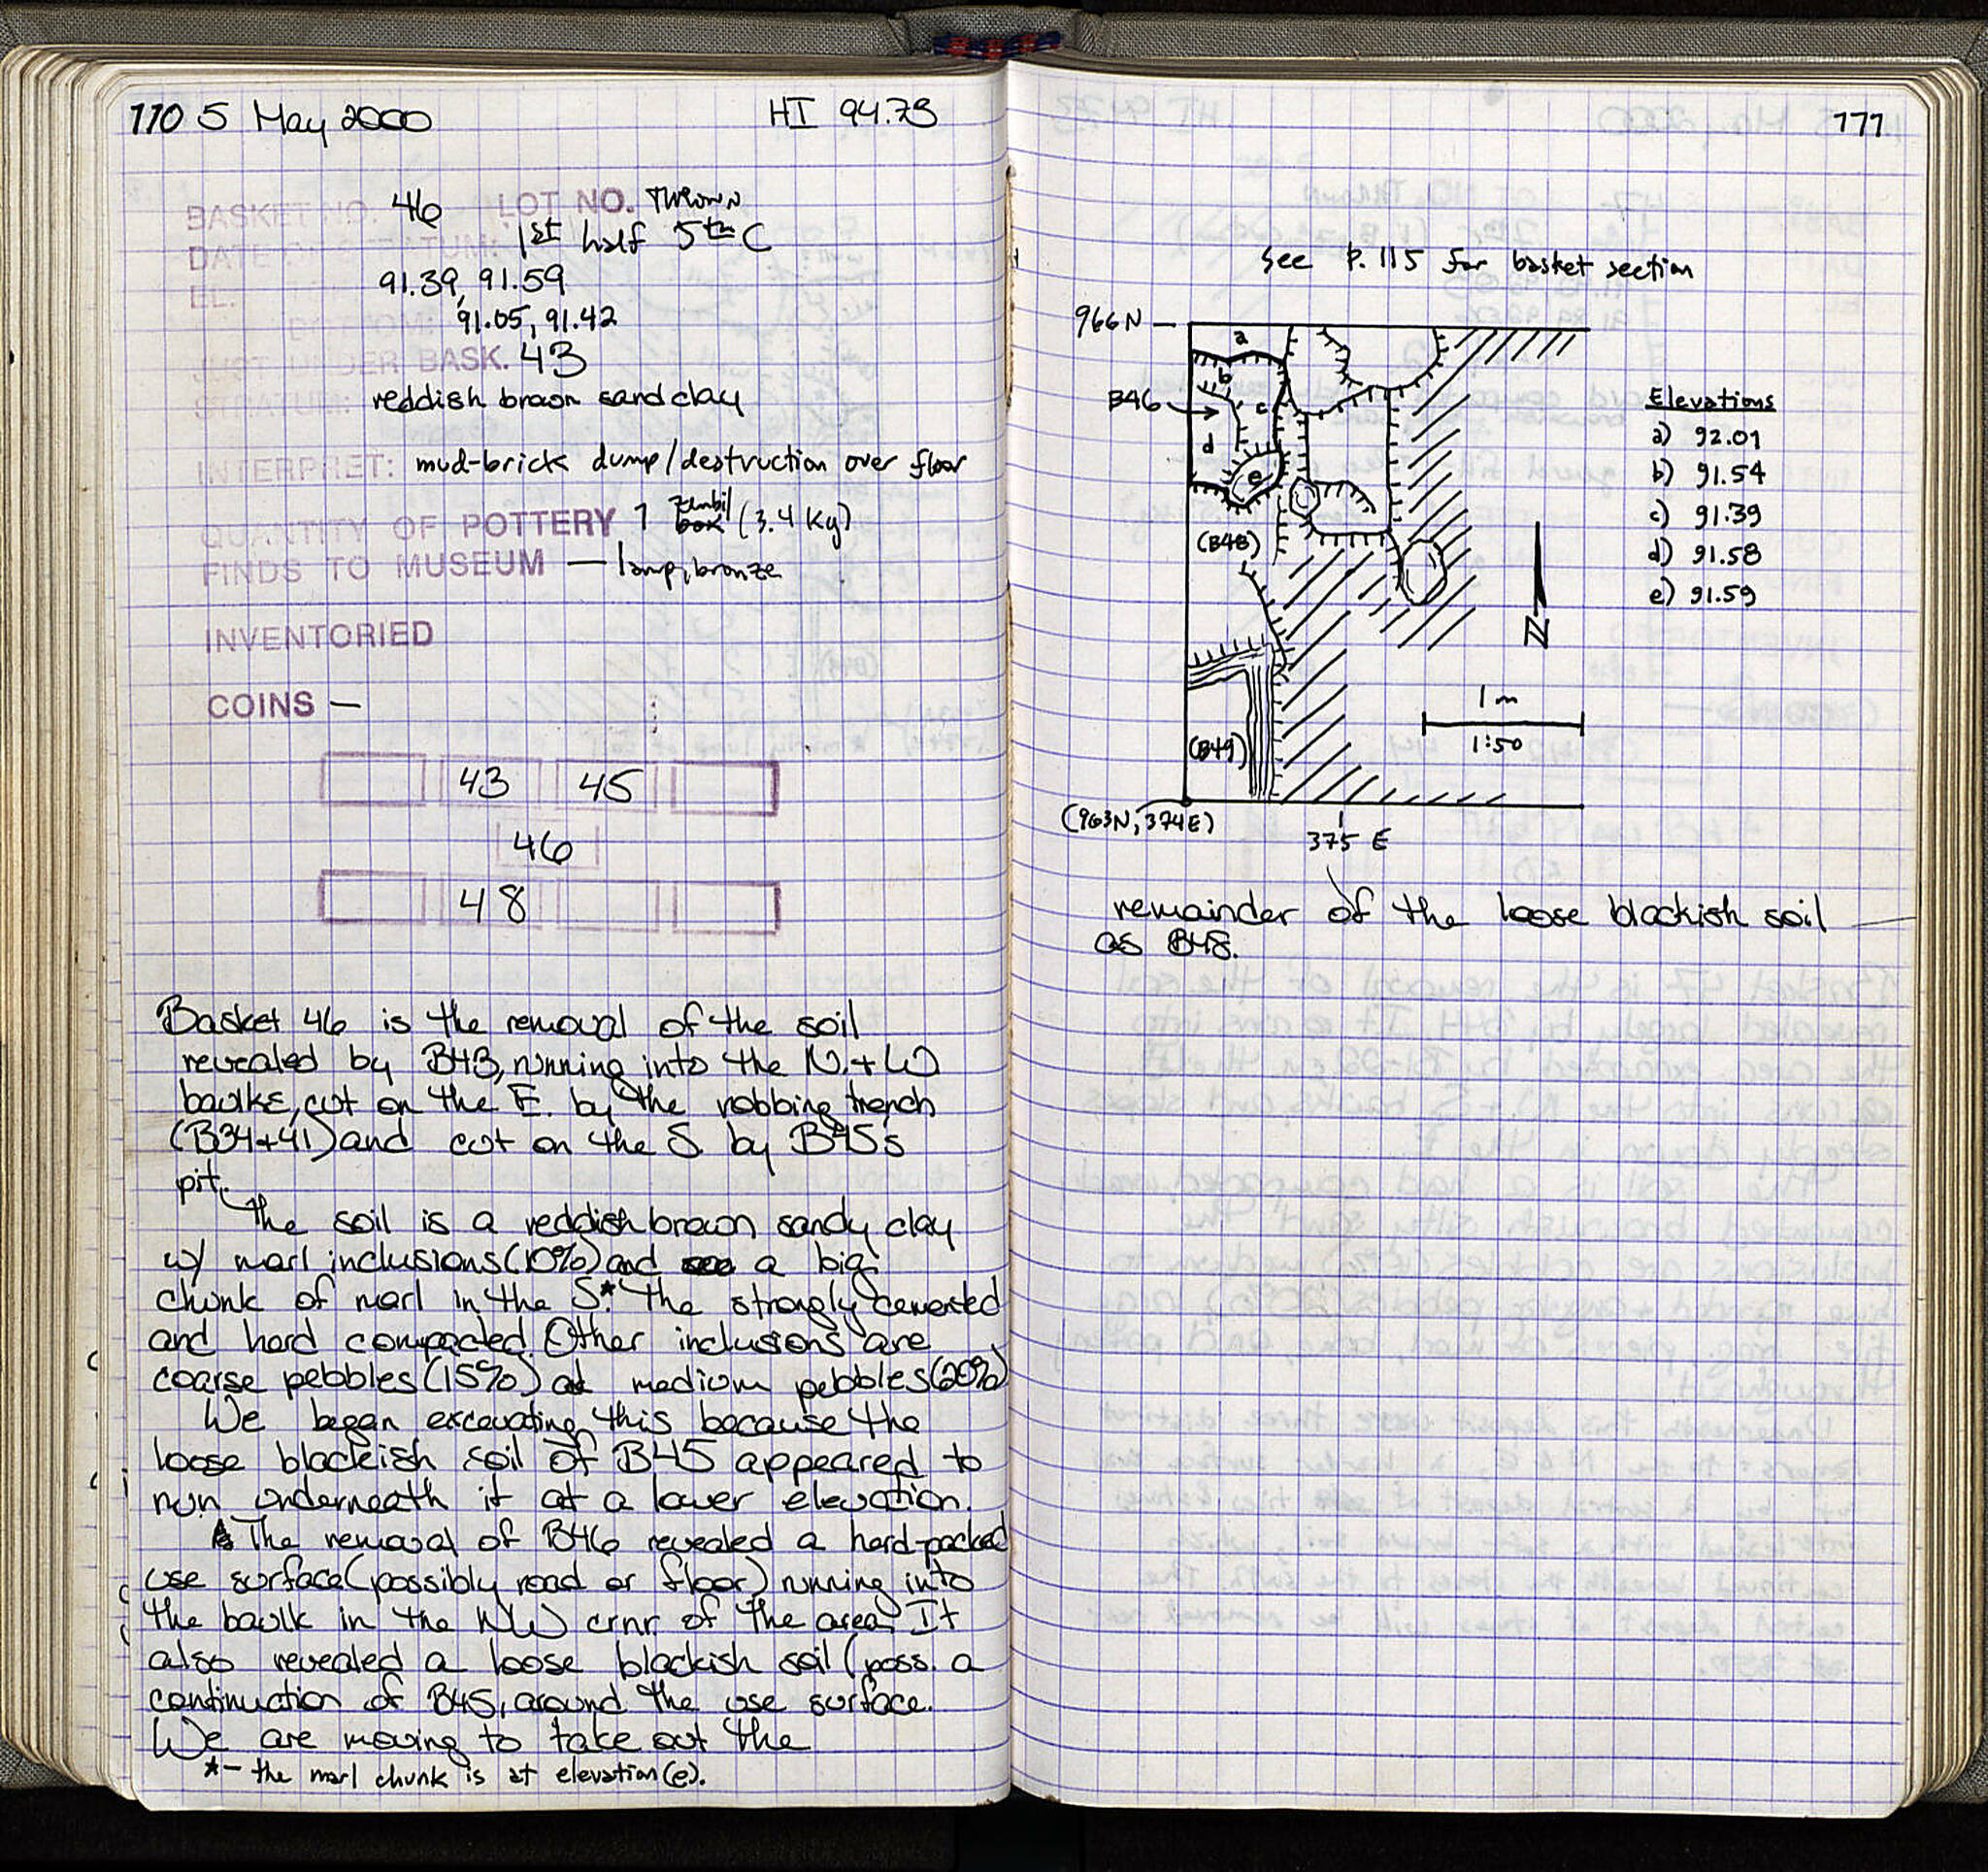 110 5 May 2000 HI 94.73
BASKET NO. 46 LOT NO. THROWN
DATE OF STRATUM: 1st half 5th C
EL. 91.39, 91.59
BOTTOM: 91.05, 91.42
JUST UNDER BASK. 43
STRATUM: reddish brown sand clay
INTERPRET: mud-brick dump/destruction over floor
QUANTITY OF POTTERY 1 zembil box (3.4 Kg)
FINDS TO MUSEUM — lamp, bronze
INVENTORIED
COINS —
43 45
46
48
Basket 46 is the removal of the soil
revealed by B43, running into the N. + W
baulks, cut on the E. by the robbing trench
(B34+41) and cut on the S. by B45's
pit.
The soil is a reddish brown sandy clay
w/ marl inclusions (10%) and a big
chunk of marl in the S.* The strongly cemented
and hard compacted. Other inclusions are
coarse pebbles (15%) at medium pebbles (20%)
We began excavating this because the
loose blackish soil of B45 appeared to
run underneath it at a lower elevation.
The removal of B46 revealed a hard-packed
use surface (possibly road or floor) running into
the baulk in the NW crnr. of the area. It
also revealed a loose blackish soil (poss. a
continuation of B45, around the use surface.
We are moving to take out the
*- the marl chunk is at elevation (e).
111
See p. 115 for basket section
966 N
a
b
B46
c
d
e
(B48)
(B49)
Elevations
a) 92.01
b) 91.54
c) 91.39
d) 91.58
e) 91.59
N
1 m
1:50
(963N, 374E)
375 E
remainder of the loose blackish soil
as B48.